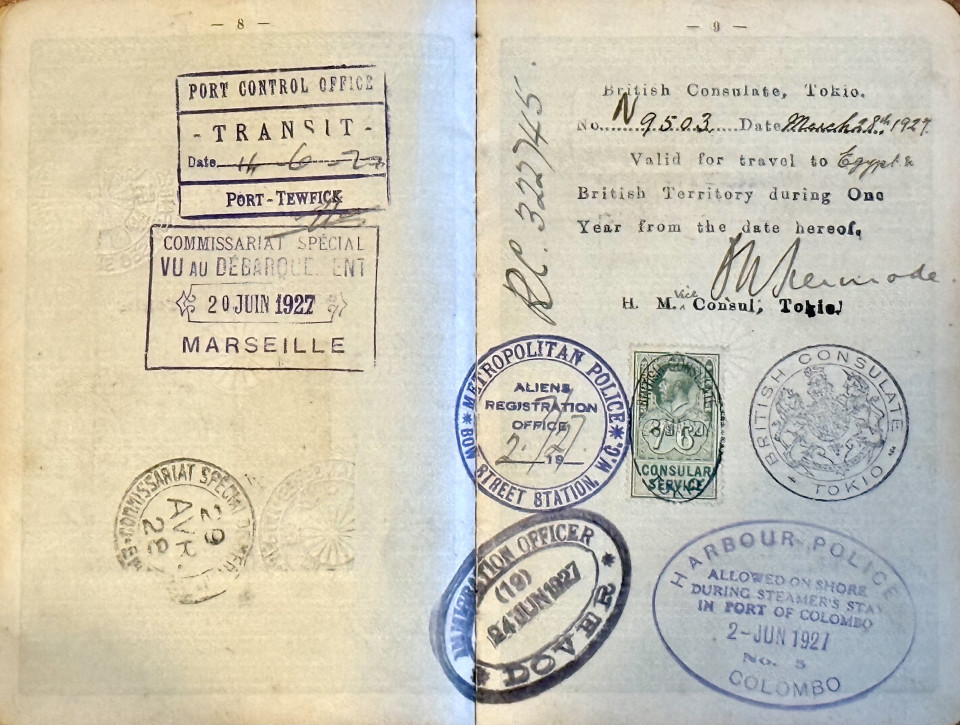 — 8 —
PORT CONTROL OFFICE
- TRANSIT -
Date 14-6-27
PORT-TEWFICK
COMMISSARIAT SPÉCIAL
VU AU DÉBARQUEMENT
20 JUIN 1927
MARSEILLE
COMMISSARIAT SPÉCIAL
29
AVR.
— 9 —
British Consulate, Tokio.
No. N 9503 Date March 28th 1927.
Valid for travel to Egypt &
British Territory during One
Year from the date hereof.
H. M. Vice Consul, Tokio.
RC. 322745.
METROPOLITAN POLICE
ALIENS
REGISTRATION
OFFICE
19
BOW STREET STATION, W.C.
CONSULAR
SERVICE
BRITISH CONSULATE
- TOKIO -
IMMIGRATION OFFICER
(19)
24 JUN 1927
* DOVER *
HARBOUR POLICE
ALLOWED ON SHORE
DURING STEAMER'S STAY
IN PORT OF COLOMBO
2-JUN 1927
No. 5
COLOMBO